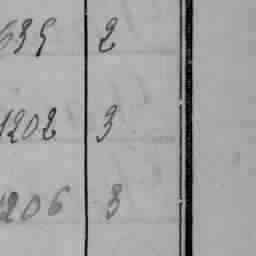 635 2
1202 3
1206 3